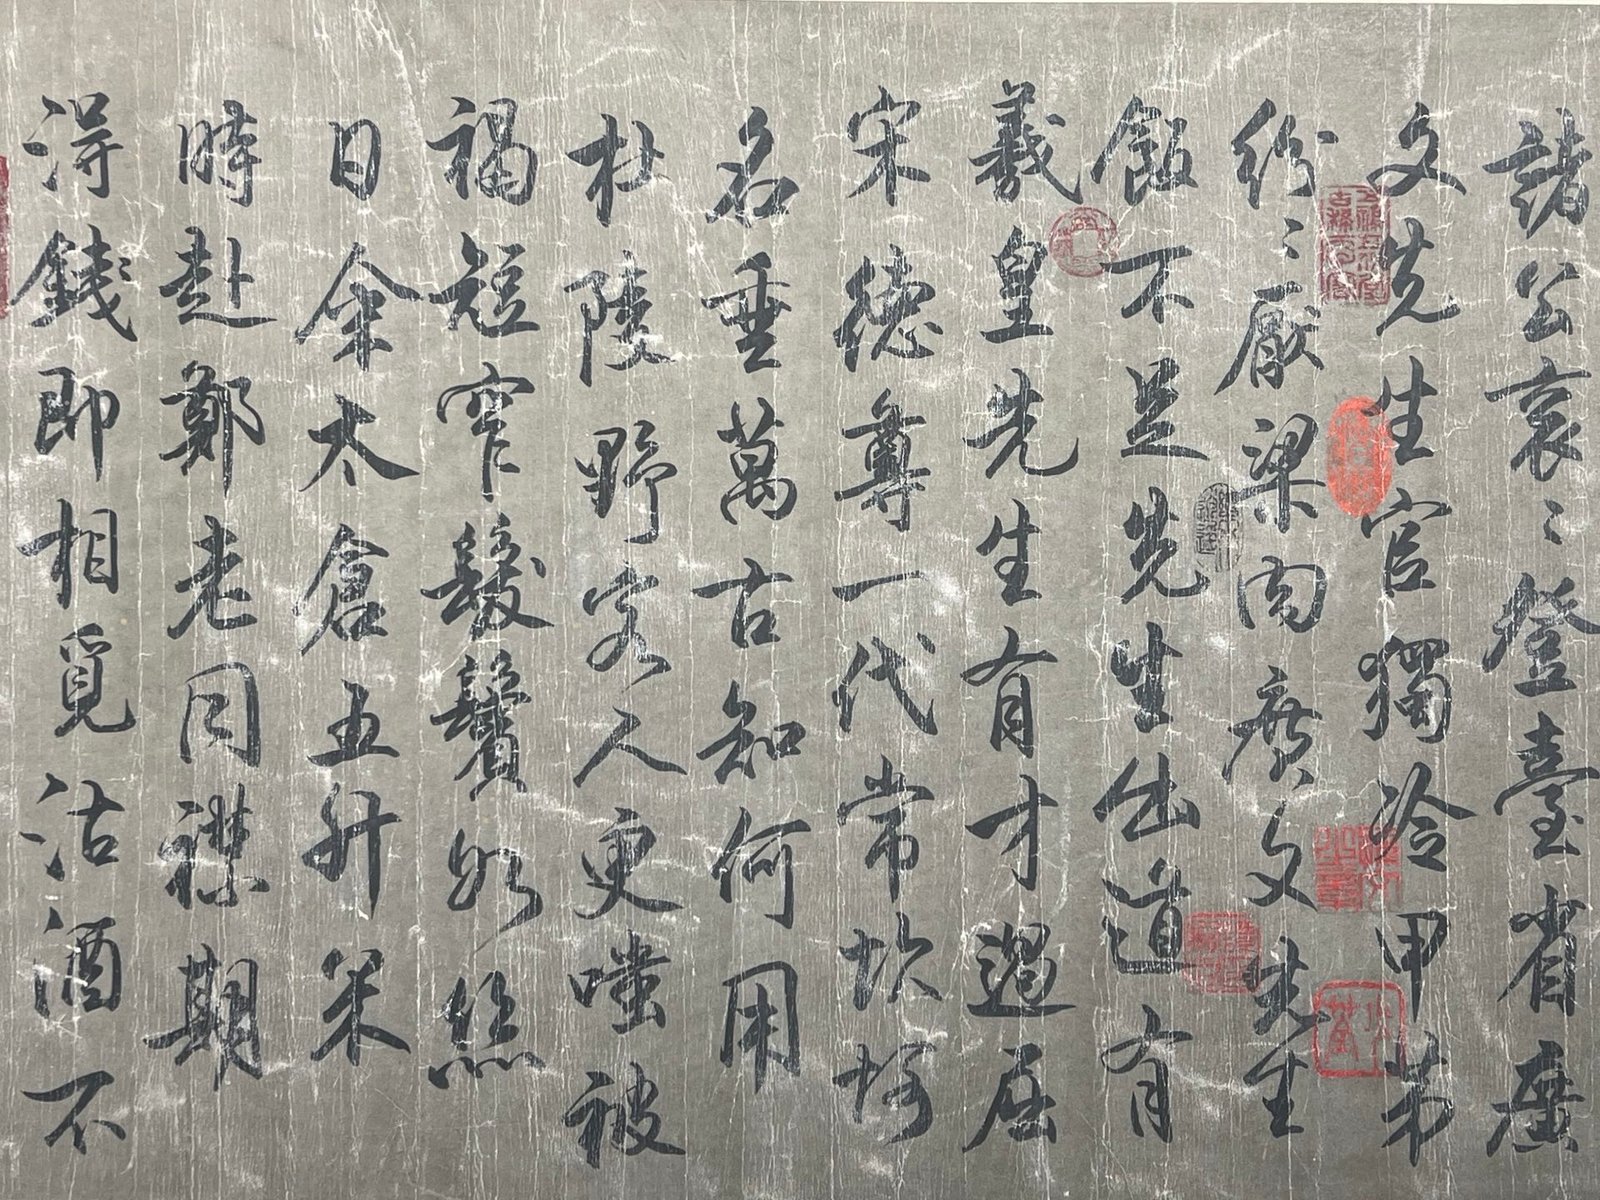 諸公衮〻登臺省廣
文先生官獨冷甲第
紛〻厭梁肉廣文先生
飯不足先生出道有
羲皇先生有才過屈
宋德尊一代常坎坷
名垂萬古知何用
杜陵野客人更嗤被
褐短窄髮鬢如絲
日籴太倉五升米
時赴鄭老同襟期
得錢即相覓沽酒不